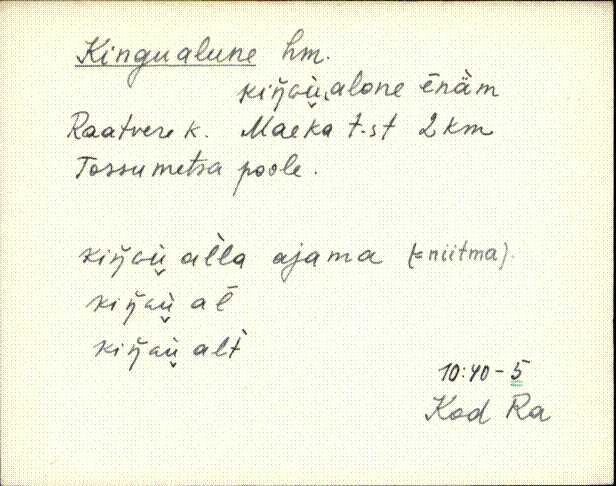 Kingualune hm.
kiŋ̆GÙ̬alone ēnäm
Raatvere k. Maeka t-st 2 km
Tossumetsa poole.
kiŋ̆GÙ̬ al̀la ajama (= niitma).
kiŋ̆GÙ̬ al̄
kiŋ̆GÙ̬ alt̀
10:40-5
Kod Ra